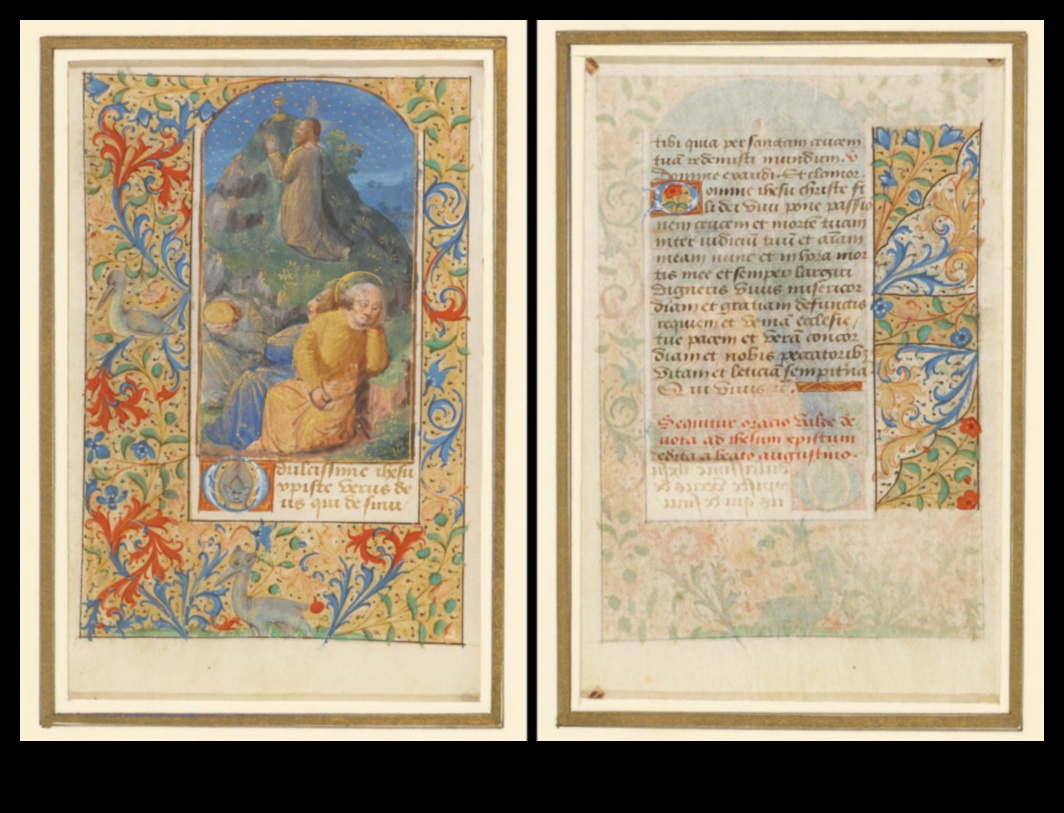 dulcissime ihesu
xpiste verus de
us qui de sinu
tibi quia per sanctam crucem
tuā redemisti mundum. v
Domine exaudi. Et clamor.
Domine ihesu christe fi
li dei vivi pone passio
nem crucem et mortē tuam
inter iudiciū tuū et aīam
meam nunc et in hora mor
tis mee et semper largiri
digneris vivis misericor
diam et grā tiam defunctis
requiem et veniā ecclesie
tue pacem et verā concor
diam et nobis peccatorib3
vitam et leticiā sempitnā
Q ui vivis
Sequitur oracio valde de
vota ad ihesum xpistum
edita a beato augustino.